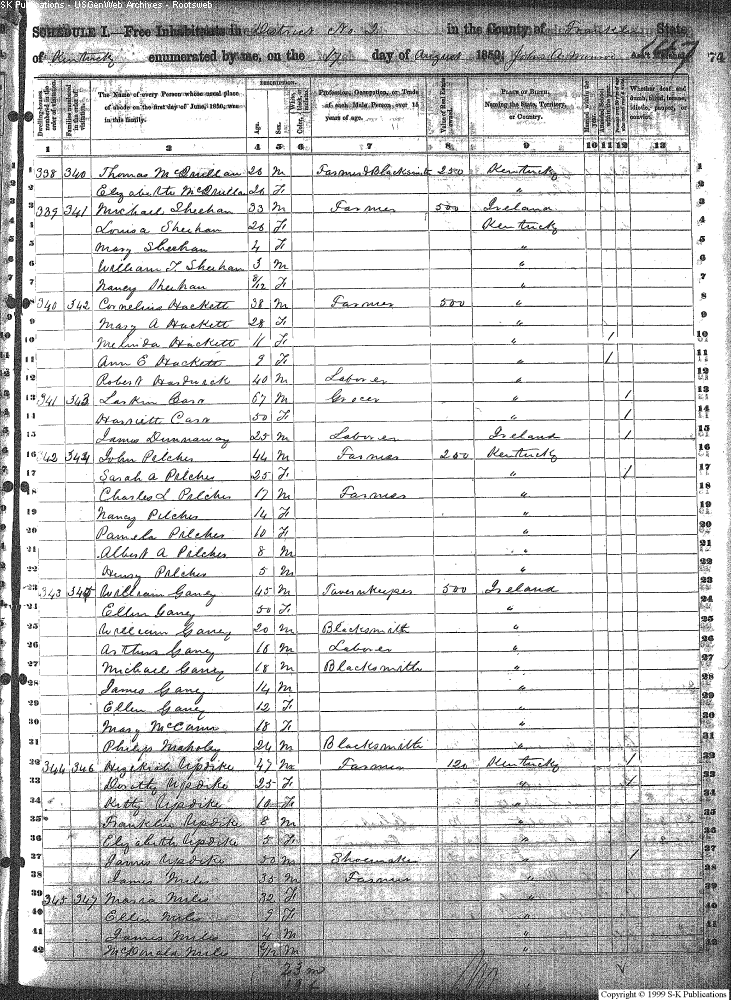 SK Publications - USGenWeb Archives - Rootsweb
SCHEDULE I.—Free Inhabitants in District No 2 in the County of State
of Kentucky enumerated by me, on the 17 day of August 1850. 147 74
DESCRIPTION.
Dwelling-houses numbered in the order of visitation. Families numbered in the order of visitation. The Name of every Person whose usual place of abode on the first day of June, 1850, was in this family. Age. Sex. Color, Profession, Occupation, or Trade of each Male Person over 15 years of age. Value of Real Estate owned. PLACE OF BIRTH, Naming the State, Territory, or Country. Whether deaf and dumb, blind, insane, idiotic, pauper, or convict.
1 2 3 4 5 6 7 8 9 10 11 12 13
338 340 Thomas McQuillan 26 M Farmer & Blacksmith 250 Kentucky 1
Elizabeth McQuillan 26 F " 2
339 341 Michael Sheehan 33 M Farmer 500 Ireland 3
Louisa Sheehan 26 F Kentucky 4
Mary Sheehan 4 F " 5
William T. Sheehan 3 M " 6
Nancy Sheehan 8/12 F " 7
340 342 Cornelius Hackett 38 M Farmer 500 " 8
9 Mary A Hackett 28 F " 9
10 Melinda Hackett 11 F " / 10
11 Ann E Hackett 9 F " / 11
12 Robert Hardwick 40 M Laborer " 12
13 341 343 Larkin Carr 67 M Grocer " / 13
14 Harriett Carr 50 F " / 14
15 James Dunnaway 25 M Laborer Ireland / 15
16 342 344 John Pilcher 44 M Farmer 250 Kentucky 16
17 Sarah A Pilcher 25 F " / 17
18 Charles L Pilcher 17 M Farmer " 18
19 Nancy Pilcher 14 F " 19
20 Pamela Pilcher 10 F " 20
21 Albert A Pilcher 8 M " 21
22 Henry Pilcher 5 M " 22
23 343 345 William Ganey 45 M Tavernkeeper 500 Ireland 23
24 Ellen Ganey 50 F " 24
25 William Ganey 20 M Blacksmith " 25
26 Arthur Ganey 16 M Laborer " 26
27 Michael Ganey 18 M Blacksmith " 27
28 James Ganey 14 M " 28
29 Ellen Ganey 12 F " 29
30 Mary McCann 18 F " 30
31 Philip Maholey 24 M Blacksmith " 31
32 344 346 Hezekiah Updike 47 M Farmer 120 Kentucky / 32
33 Dorotty Updike 25 F " / 33
34 Kitty Updike 10 F " 34
35 Franklin Updike 8 M " 35
36 Elizabeth Updike 5 F " 36
37 James Updike 50 M Shoemaker " / 37
38 James Miles 35 M Farmer " 38
39 345 347 Maria Miles 32 F " 39
40 Ellen Miles 9 F " 40
41 James Miles 4 M " 41
42 McDonald Miles M " 42
23 m
19 f
Copyright © 1999 S-K Publications